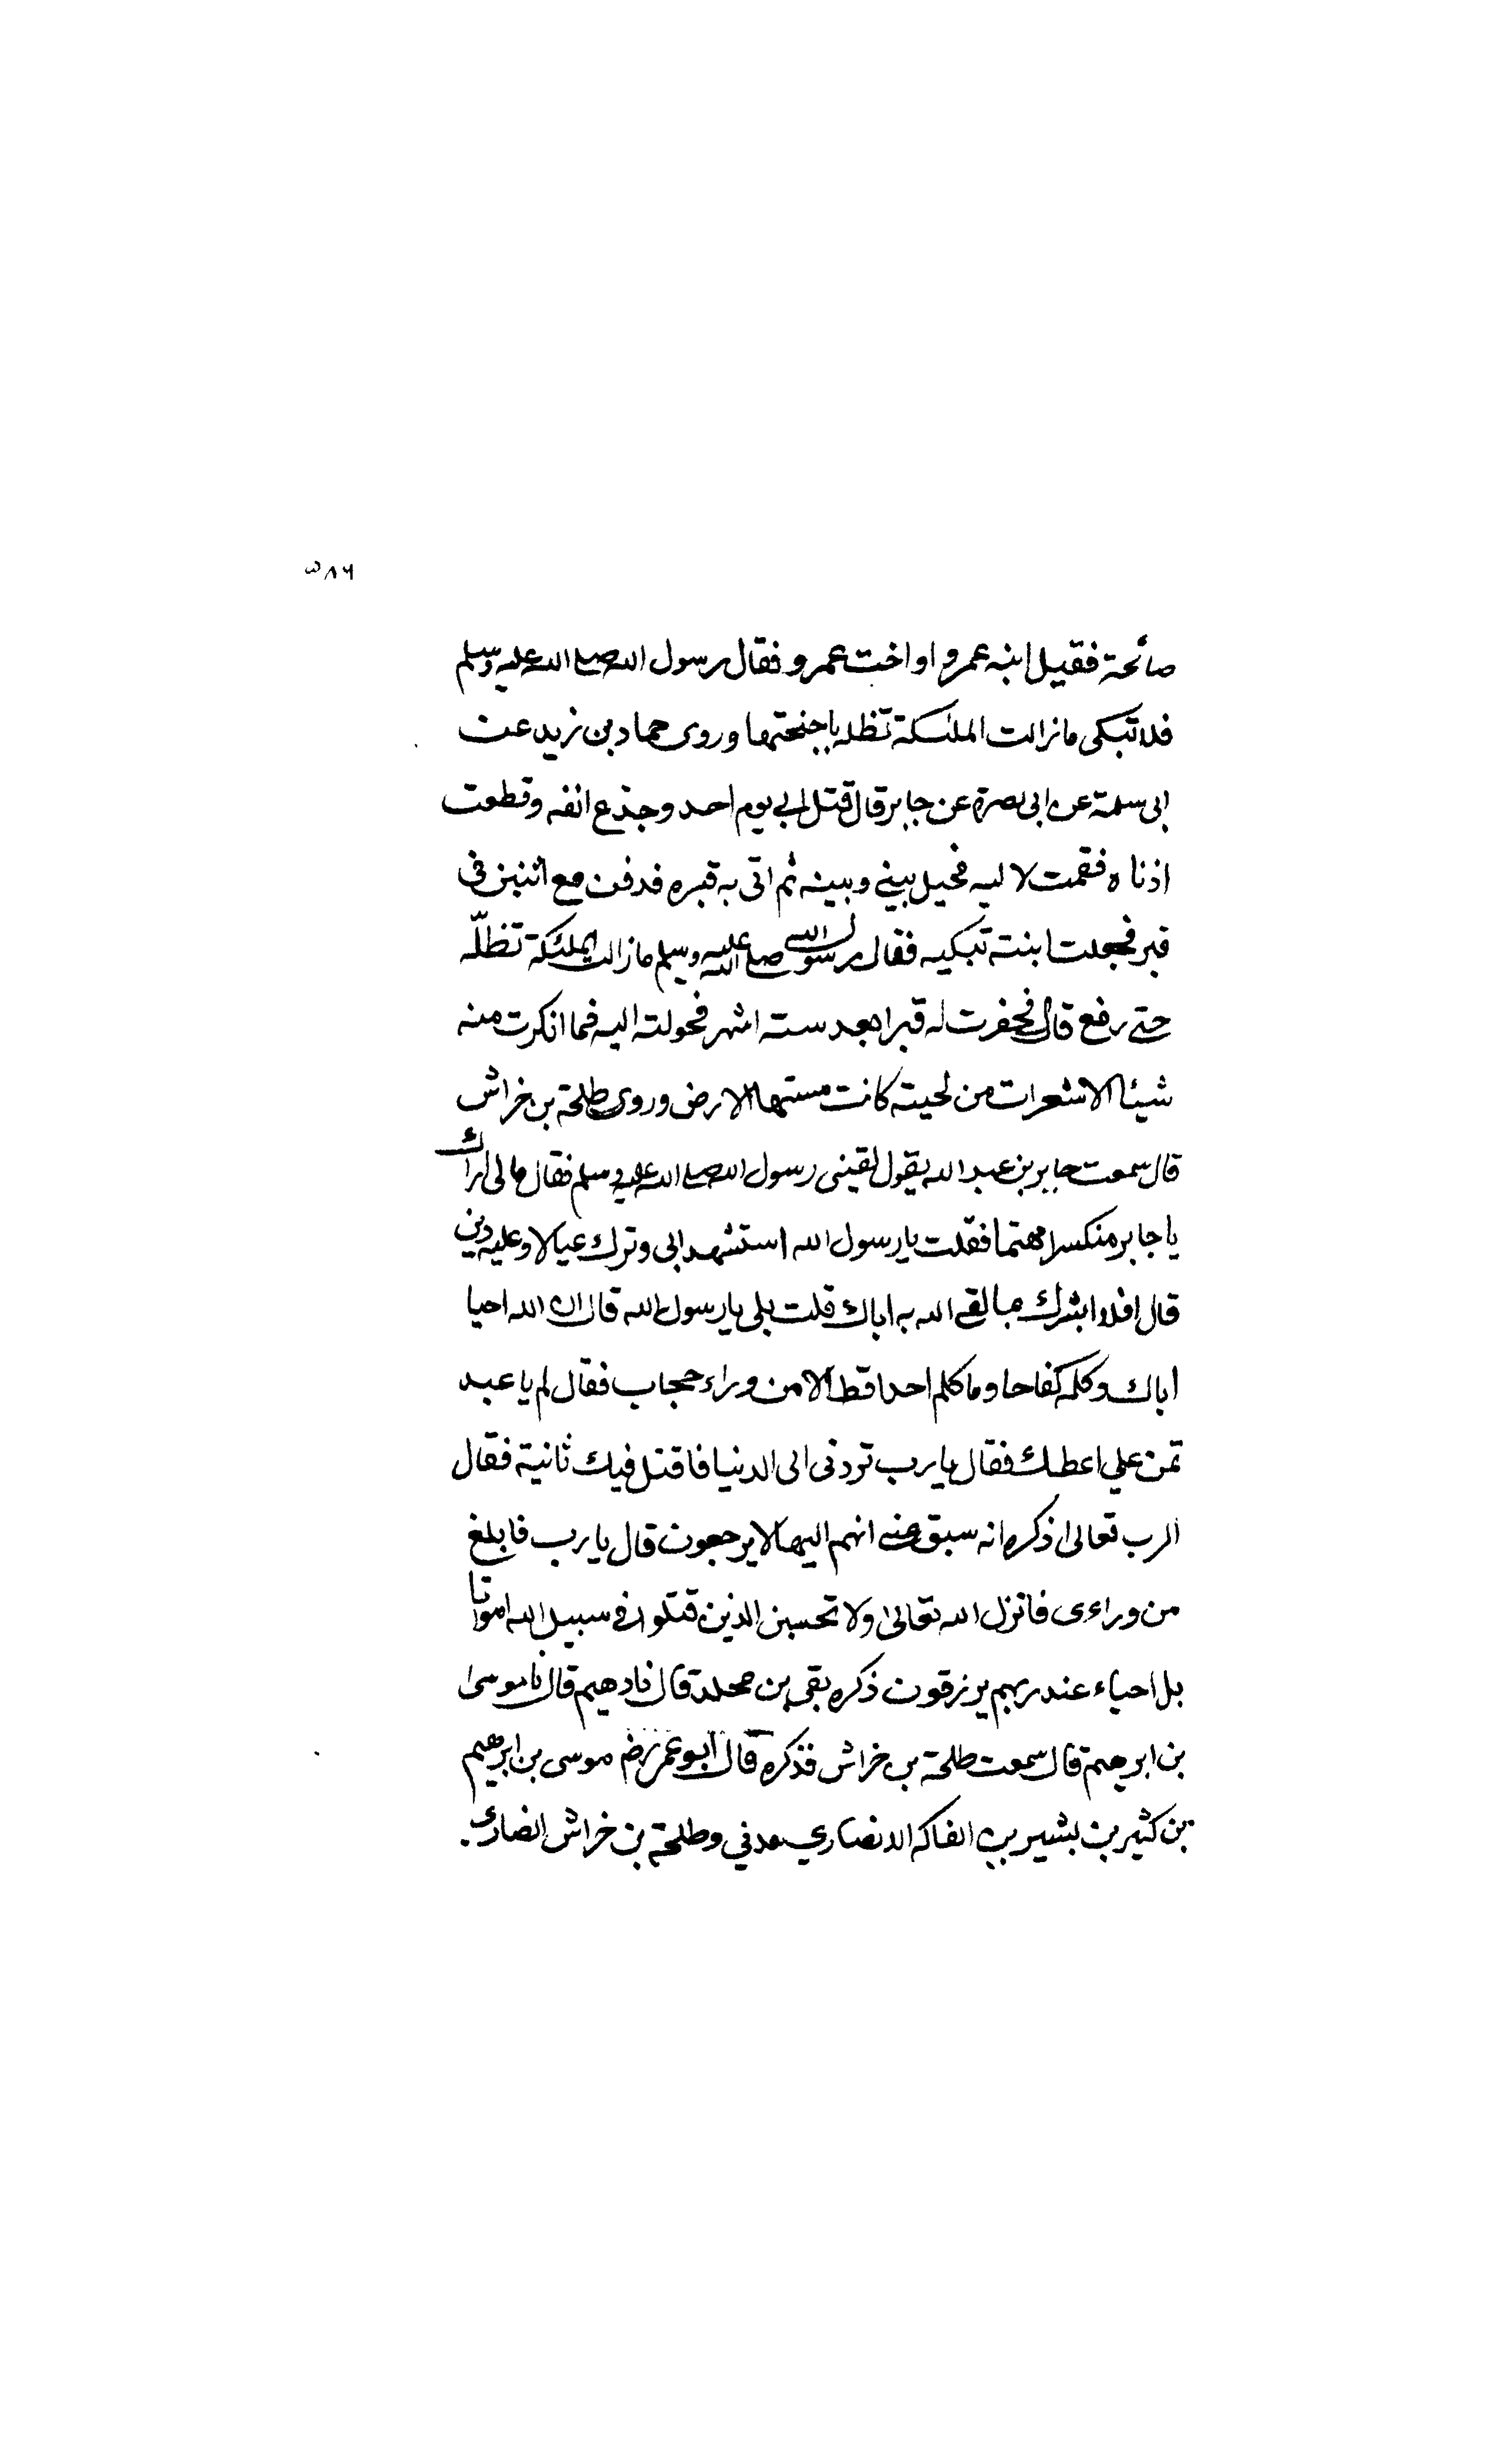 ٣٨٦
صائحة فقيل ابنه عمرو او اخت عمرو فقال رسول الله صلى الله عليه وسلم
فلا تبكى ما زالت الملئكة تظله باجنحتها وروى حماد بن زيد عن
ابى سلمة عن ابى بصرة عن جابر قال قتل ابي يوم احد وجذع انفه وقطعت
اذناه فقمت لا ليه فحيل بيني وبينه ثم اتى به قبره فدفن مع اثنين فى
قبر فجعلت ابنته تبكيه فقال رسول الله صلى الله عليه وسلم ما زالت الملئكة تظلّه
حتى رفع قال فحفرت له قبرا بعد ستة اشهر فحولته اليه فما انكرت منه
شيئا الا شعرات من لحيته كانت مستها الارض وروى طلحة بن خراش
قال سمعت جابر بن عبد الله يقول لقينى رسول الله صلى الله عليه وسلم فقال مالى اراك
يا جابر منكسرا مهتما فقلت يا رسول الله استشهد ابى وترك عيالا وعليه دين
قال افلا ابشرك بما لقى الله به اباك قلت بلى يا رسول الله قال ان الله احيا
اباك وكلمه كفاحا وما كلم احدا قط الا من وراء حجاب فقال له يا عبد
تمن علي اعطك فقال يا رب تردنى الى الدنيا فاقتل فيك ثانية فقال
الرب تعالى ذكره انه سبق منى انهم اليها لا يرجعون قال يا رب فابلغ
من وراءى فانزل الله تعالى ولا تحسبن الذين قتلوا في سبيل الله امواتا
بل احياء عند ربهم يرزقون ذكره بقى بن مخلد قال نا دهيم قال نا موسى
بن ابرهيم قال سمعت طلحة بن خراش فذكره قال ابو عمر رضـ موسى بن ابرهيم
بن كثير بن بشير بن الفاكه الانصاري مدني وطلحة بن خراش انصارى